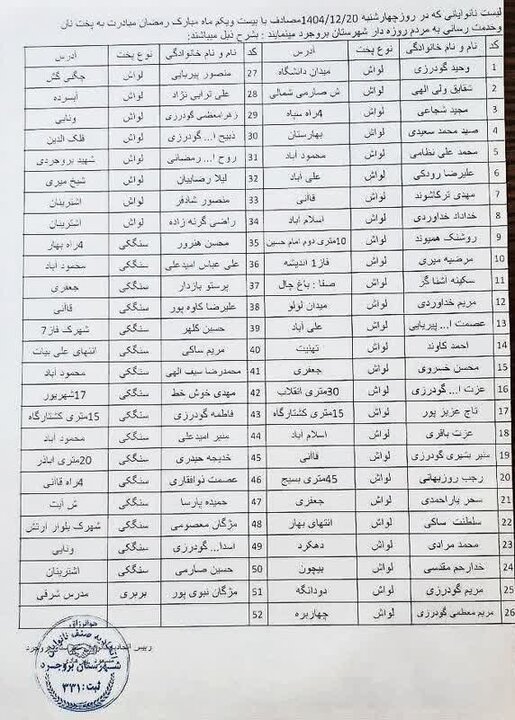 لیست نانوایانی که در روز چهارشنبه 1404/12/20مصادف با بیست ویکم ماه مبارک رمضان مبادرت به پخت نان
وخدمت رسانی به مردم روزه دار شهرستان بروجرد مینمایند : بشرح ذیل میباشند:
کد نام و نام خانوادگی نوع پخت آدرس کد نام و نام خانوادگی نوع پخت آدرس
1 وحید گودرزی لواش میدان دانشگاه 27 منصور پیریایی لواش چگنی کش
2 شقایق ولی الهی لواش ش صارمی شمالی 28 علی ترابی نژاد لواش آبسرده
3 مجید شجاعی لواش 4راه سپاه 29 زهرامعظمی گودرزی لواش ونایی
4 صید محمد سعیدی لواش بهارستان 30 ذبیح ا... گودرزی لواش فلک الدین
5 محمد علی نظامی لواش محمود آباد 31 روح ا... رمضانی لواش شهید بروجردی
6 علیرضا رودکی لواش علی آباد 32 لیلا رضاییان لواش شیخ میری
7 مهدی ترکاشوند لواش قاآنی 33 منصور شادفر لواش اشترینان
8 خداداد خداوردی لواش اسلام آباد 34 راضی گرنه زاده لواش اشترینان
9 روشنک همیوند لواش 10متری دوم امام حسین 35 محسن هنرور سنگکی 4راه بهار
10 مرضیه میری لواش فاز1 اندیشه 36 علی عباس امیدعلی سنگکی محمود آباد
11 سکینه آشنا گر لواش صفا : باغ چال 37 پرستو بازدار سنگکی جعفری
12 مریم خداوردی لواش میدان لولو 38 علیرضا کاوه پور سنگکی قاآنی
13 عصمت ا... پیریایی لواش علی آباد 39 حسین کلهر سنگکی شهرک فاز7
14 احمد کاوند لواش تهنیت 40 مریم ساکی سنگکی انتهای علی بیات
15 محسن خسروی لواش جعفری 41 محمدرضا سیف الهی سنگکی محمود آباد
16 عزت ا... گودرزی لواش 30متری انقلاب 42 مهدی خوش خط سنگکی 17شهریور
17 تاج عزیز پور لواش 15متری کشتارگاه 43 فاطمه گودرزی سنگکی 15متری کشتارگاه
18 عزت باقری لواش اسلام آباد 44 منیر امیدعلی سنگکی محمود آباد
19 منیر بشیری گودرزی لواش قاآنی 45 خدیجه حیدری سنگکی 20متری اباذر
20 رجب روزبهانی لواش 45متری بسیج 46 عصمت نوافقاری سنگکی 4راه قاآنی
21 سحر یاراحمدی لواش جعفری 47 حمیده پارسا سنگکی ش آیت
22 سلطنت ساکی لواش انتهای بهار 48 مژگان معصومی سنگکی شهرک بلوار ارتش
23 محمد مرادی لواش دهکرد 49 اسدا... گودرزی سنگکی ونایی
24 خدارحم مقدسی لواش بیچون 50 حسین صارمی سنگکی اشترینان
25 مریم گودرزی لواش دودانگه 51 مژگان نبوی پور بربری مدرس شرقی
26 مریم معظمی گودرزی لواش چهاربره 52
رییس اتحادیه بروجرد
هوالرزاق
اتحادیه صنف نانوایان
شهرستان بروجرد
ثبت : ۳۳۱